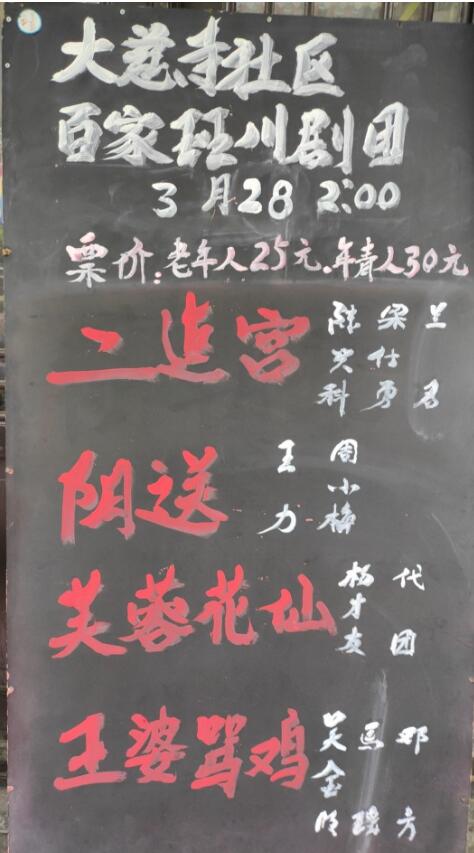 大慈寺社区
百家班川剧团
3月28 2:00
票价:老年人25元.年青人30元
二进宫
梁仕勇 兰名
阴送
王力 周小梅
芙蓉花仙
杨才友 代团
王婆骂鸡
吴金 马 邓方